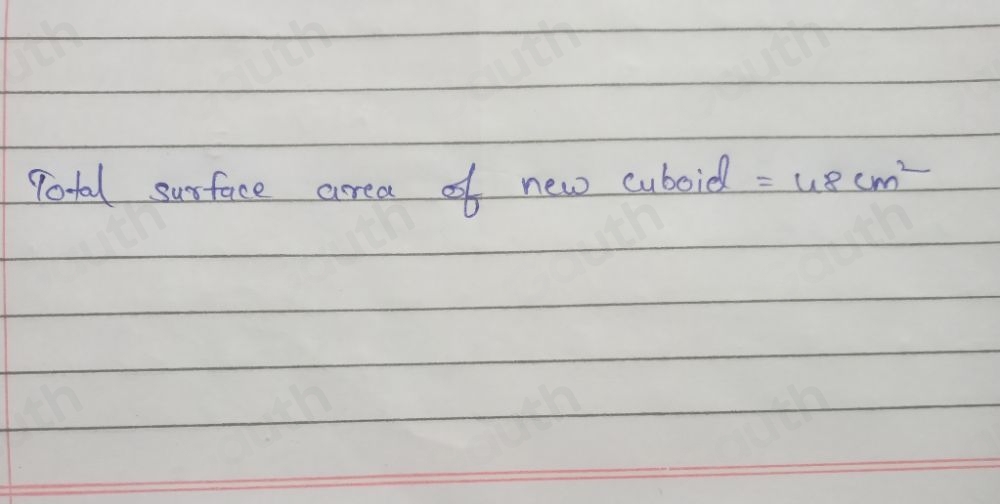 Total surface area of new cuboid = 48 cm²